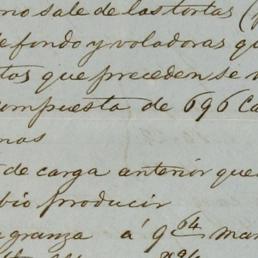 no sale de las tortas (
de fondo y voladoras qu
tos que preceden se
ompuesta de 696 Ca
nos
de carga anterior que
bio producir
granza á 9 64 mar